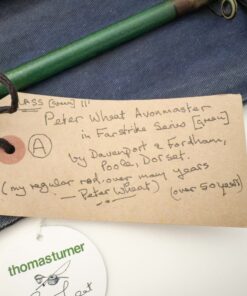 GLASS [green] 11'
Peter Wheat Avonmaster
in Farstrike Series [green]
A
by Davenport & Fordham,
Poole, Dorset.
(my regular rod over many years
— Peter Wheat) (over 50 years)
thomasturner
Peter Wheat